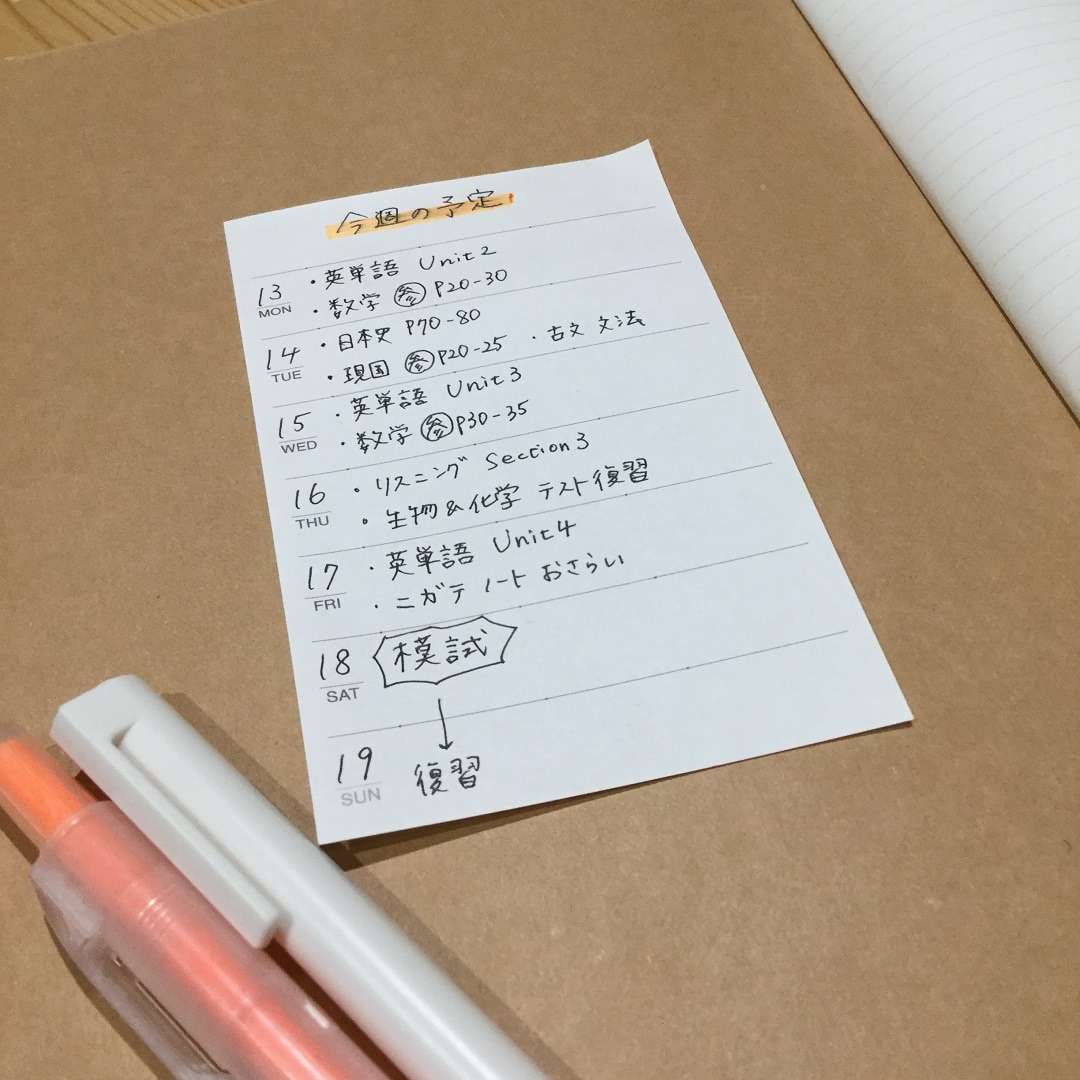 今週の予定
13 MON ・英単語 Unit2
・数学 参 P20-30
14 TUE ・日本史 P70-80
・現国 参 P20-25 ・古文 文法
15 WED ・英単語 Unit3
・数学 参 P30-35
16 THU ・リスニング Section3
・生物&化学 テスト復習
17 FRI ・英単語 Unit4
・ニガテノート おさらい
18 SAT 模試
↓
19 SUN 復習